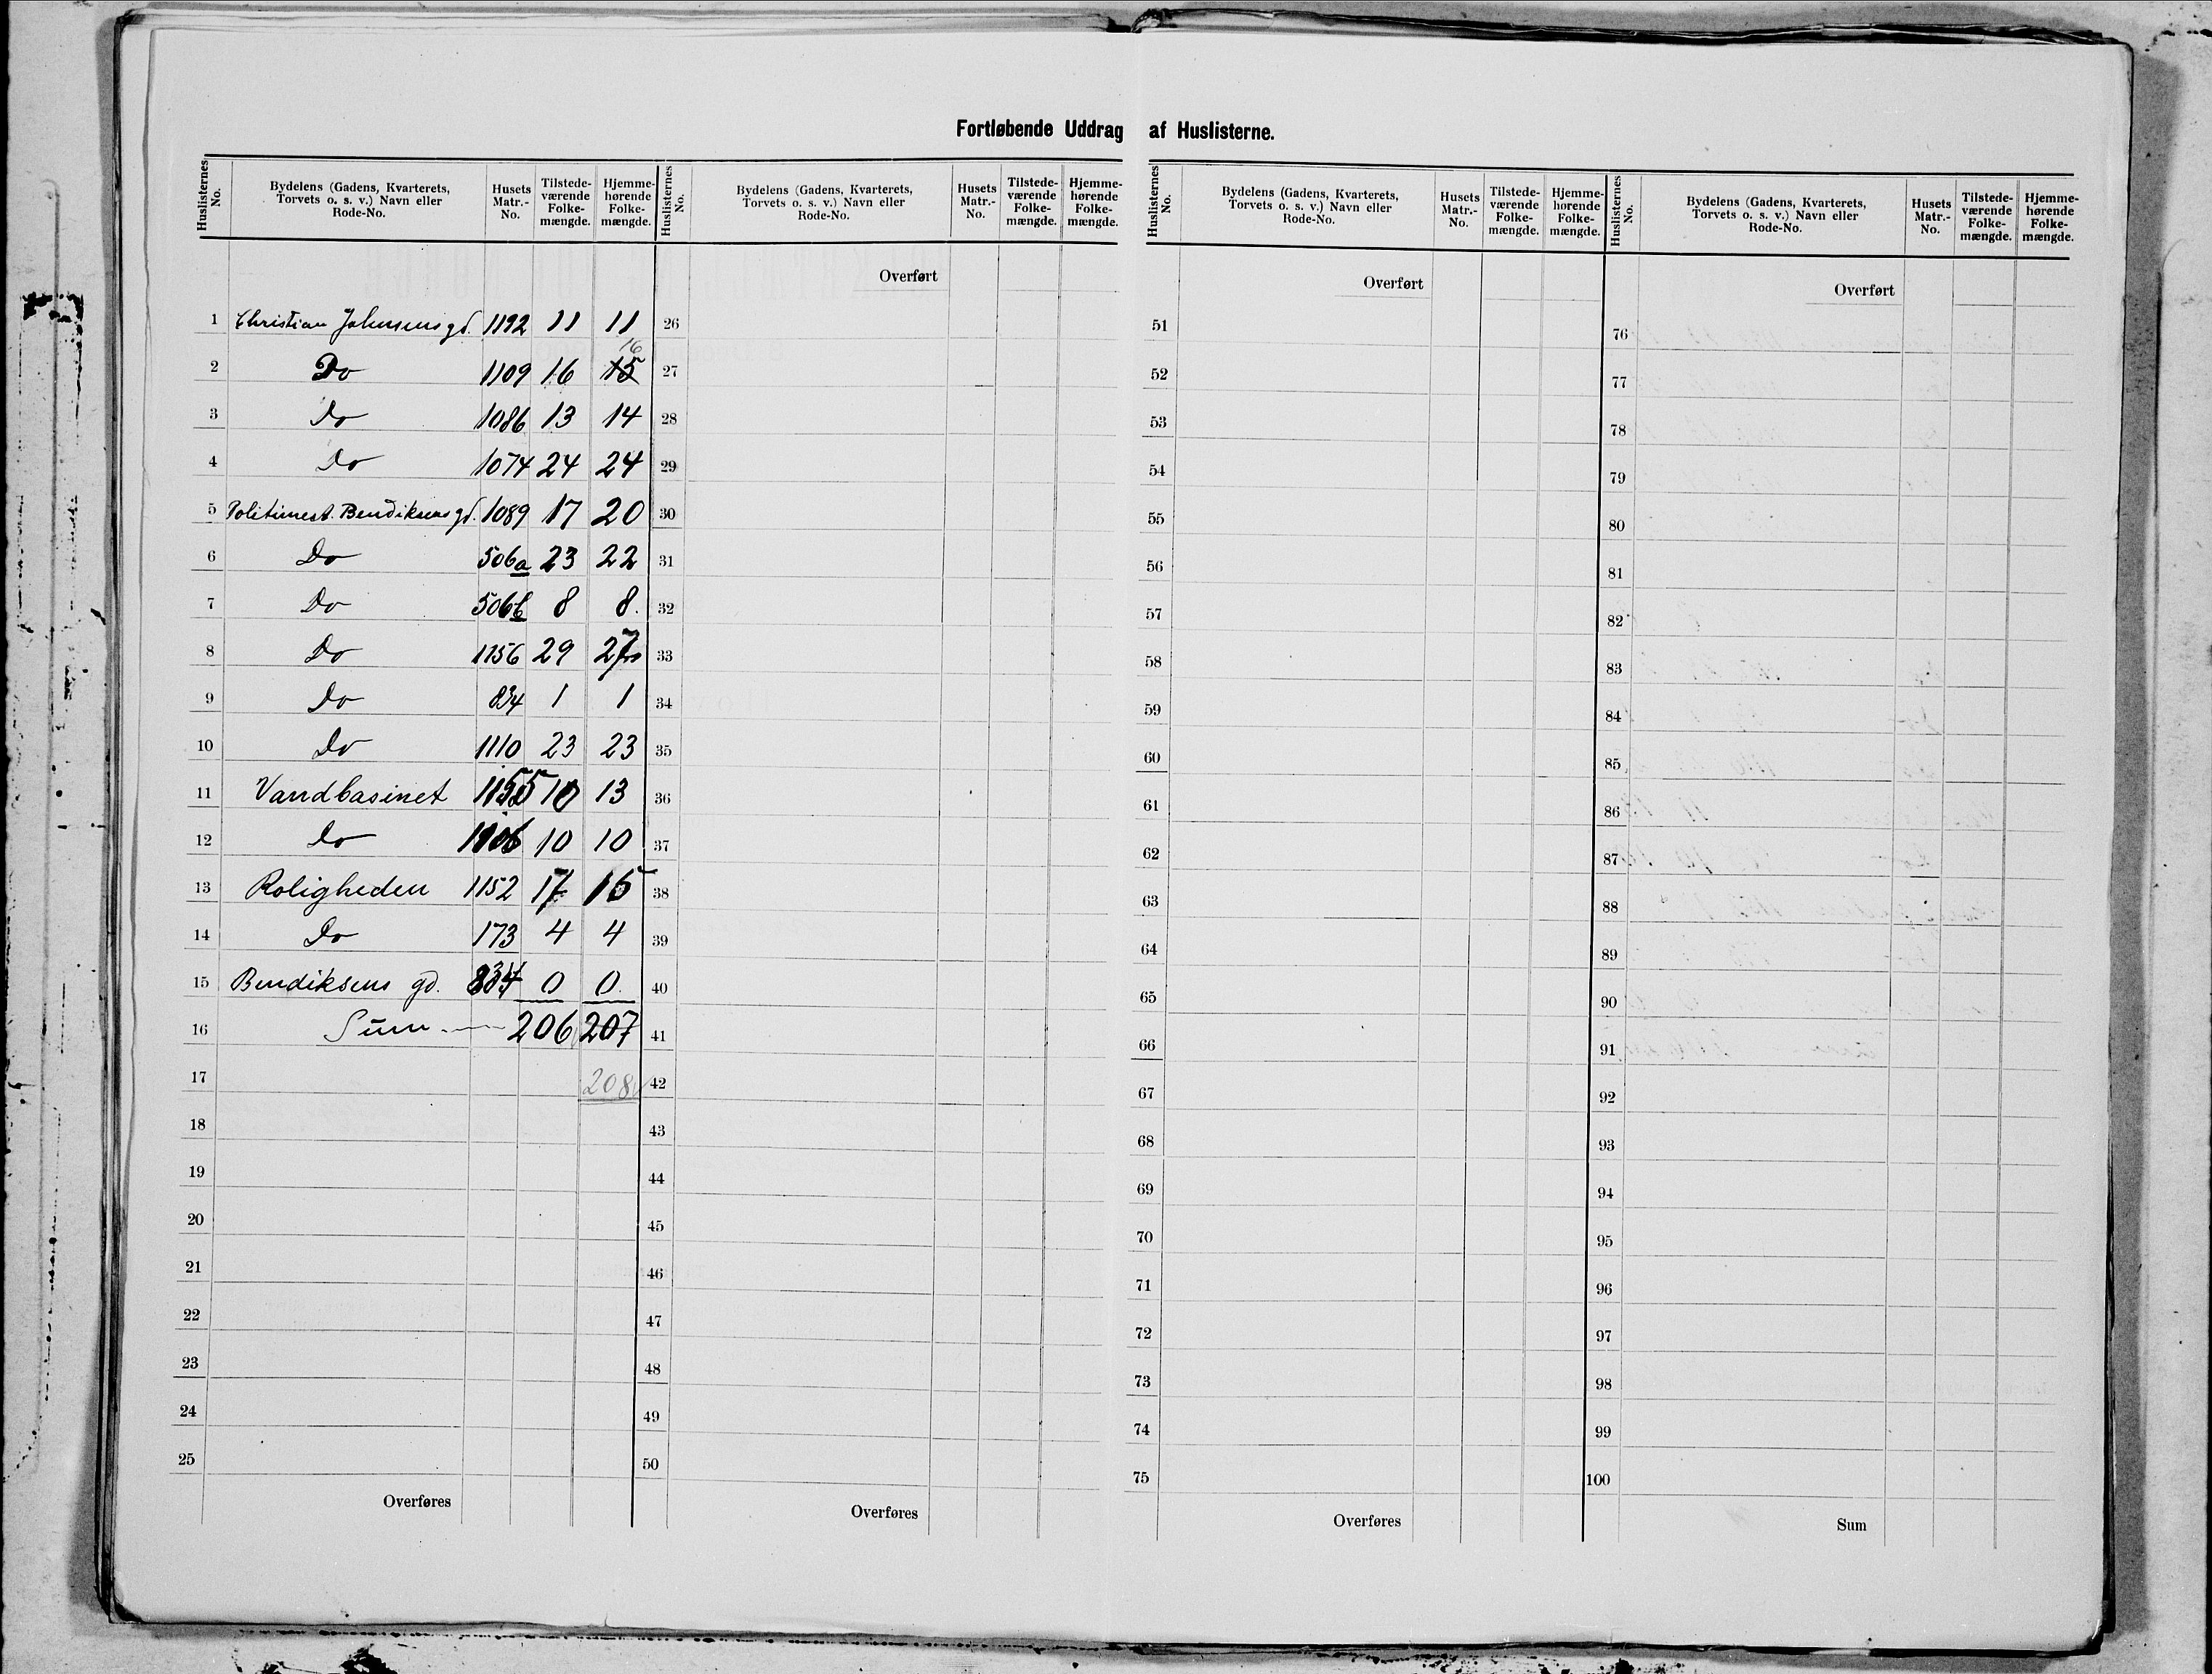 Fortløbende Uddrag af Huslisterne.
Huslisternes No. Bydelens (Gadens, Kvarterets, Torvets o. s. v.) Navn eller Rode-No. Husets Matr.-No. Tilstede-værende Folke-mængde. Hjemme-hørende Folke-mængde. Huslisternes No. Bydelens (Gadens, Kvarterets, Torvets o. s. v.) Navn eller Rode-No. Husets Matr.-No. Tilstede-værende Folke-mængde. Hjemme-hørende Folke-mængde. Huslisternes No. Bydelens (Gadens, Kvarterets, Torvets o. s. v.) Navn eller Rode-No. Husets Matr.-No. Tilstede-værende Folke-mængde. Hjemme-hørende Folke-mængde. Huslisternes No. Bydelens (Gadens, Kvarterets, Torvets o. s. v.) Navn eller Rode-No. Husets Matr.-No. Tilstede-værende Folke-mængde. Hjemme-hørende Folke-mængde.
Overført Overført Overført
1 Christian Johnsens gd. 1192 11 11 26 51 76
16
2 Do 1109 16 15 27 52 77
3 Do 1086 13 14 28 53 78
4 Do 1074 24 24 29 54 79
5 Politimest. Bendiksens gd. 1089 17 20 30 55 80
6 Do 506a 23 22 31 56 81
7 Do 506b 8 8. 32 57 82
8 Do 1156 29 27 33 58 83
9 Do 834 1 1 34 59 84
10 Do 1110 23 23 35 60 85
11 Vandbasinet 1155 10 13 36 61 86
12 Do 10 10 37 62 87
13 Roligheden 1152 17 15 38 63 88
14 Do 173 4 4 39 64 89
15 Bendiksens gd. 834 0 0 40 65 90
16 Sum 206 207 41 66 91
17 208 42 67 92
18 43 68 93
19 44 69 94
20 45 70 95
21 46 71 96
22 47 72 97
23 48 73 98
24 49 74 99
25 50 75 100
Overføres Overføres Overføres Sum